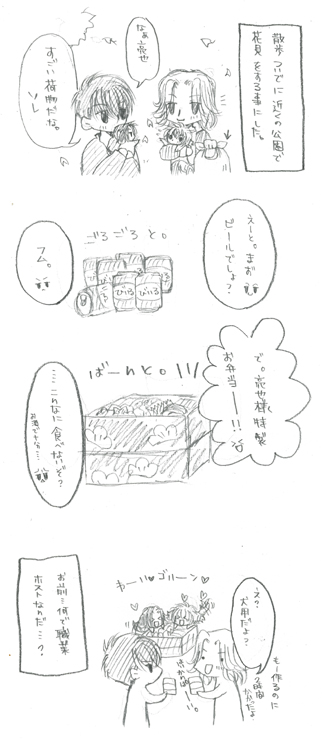 散歩ついでに近くの公園で
花見をする事にした。
なぁ亮也
すごい荷物だな。
ソレ
えーと。まぁ
ビールでしょ?
ごろごろと。
びいる
びいる
びいる
フム。
で。亮也様特製
お弁当ーー!!
ばーんと。
……こんなに食べないぞ?
え?
犬用だよ?
もー作るのに
2時間
かかったよ
わーい♥ゴルーン♡
お前…何で職業
ホストなんだ…?